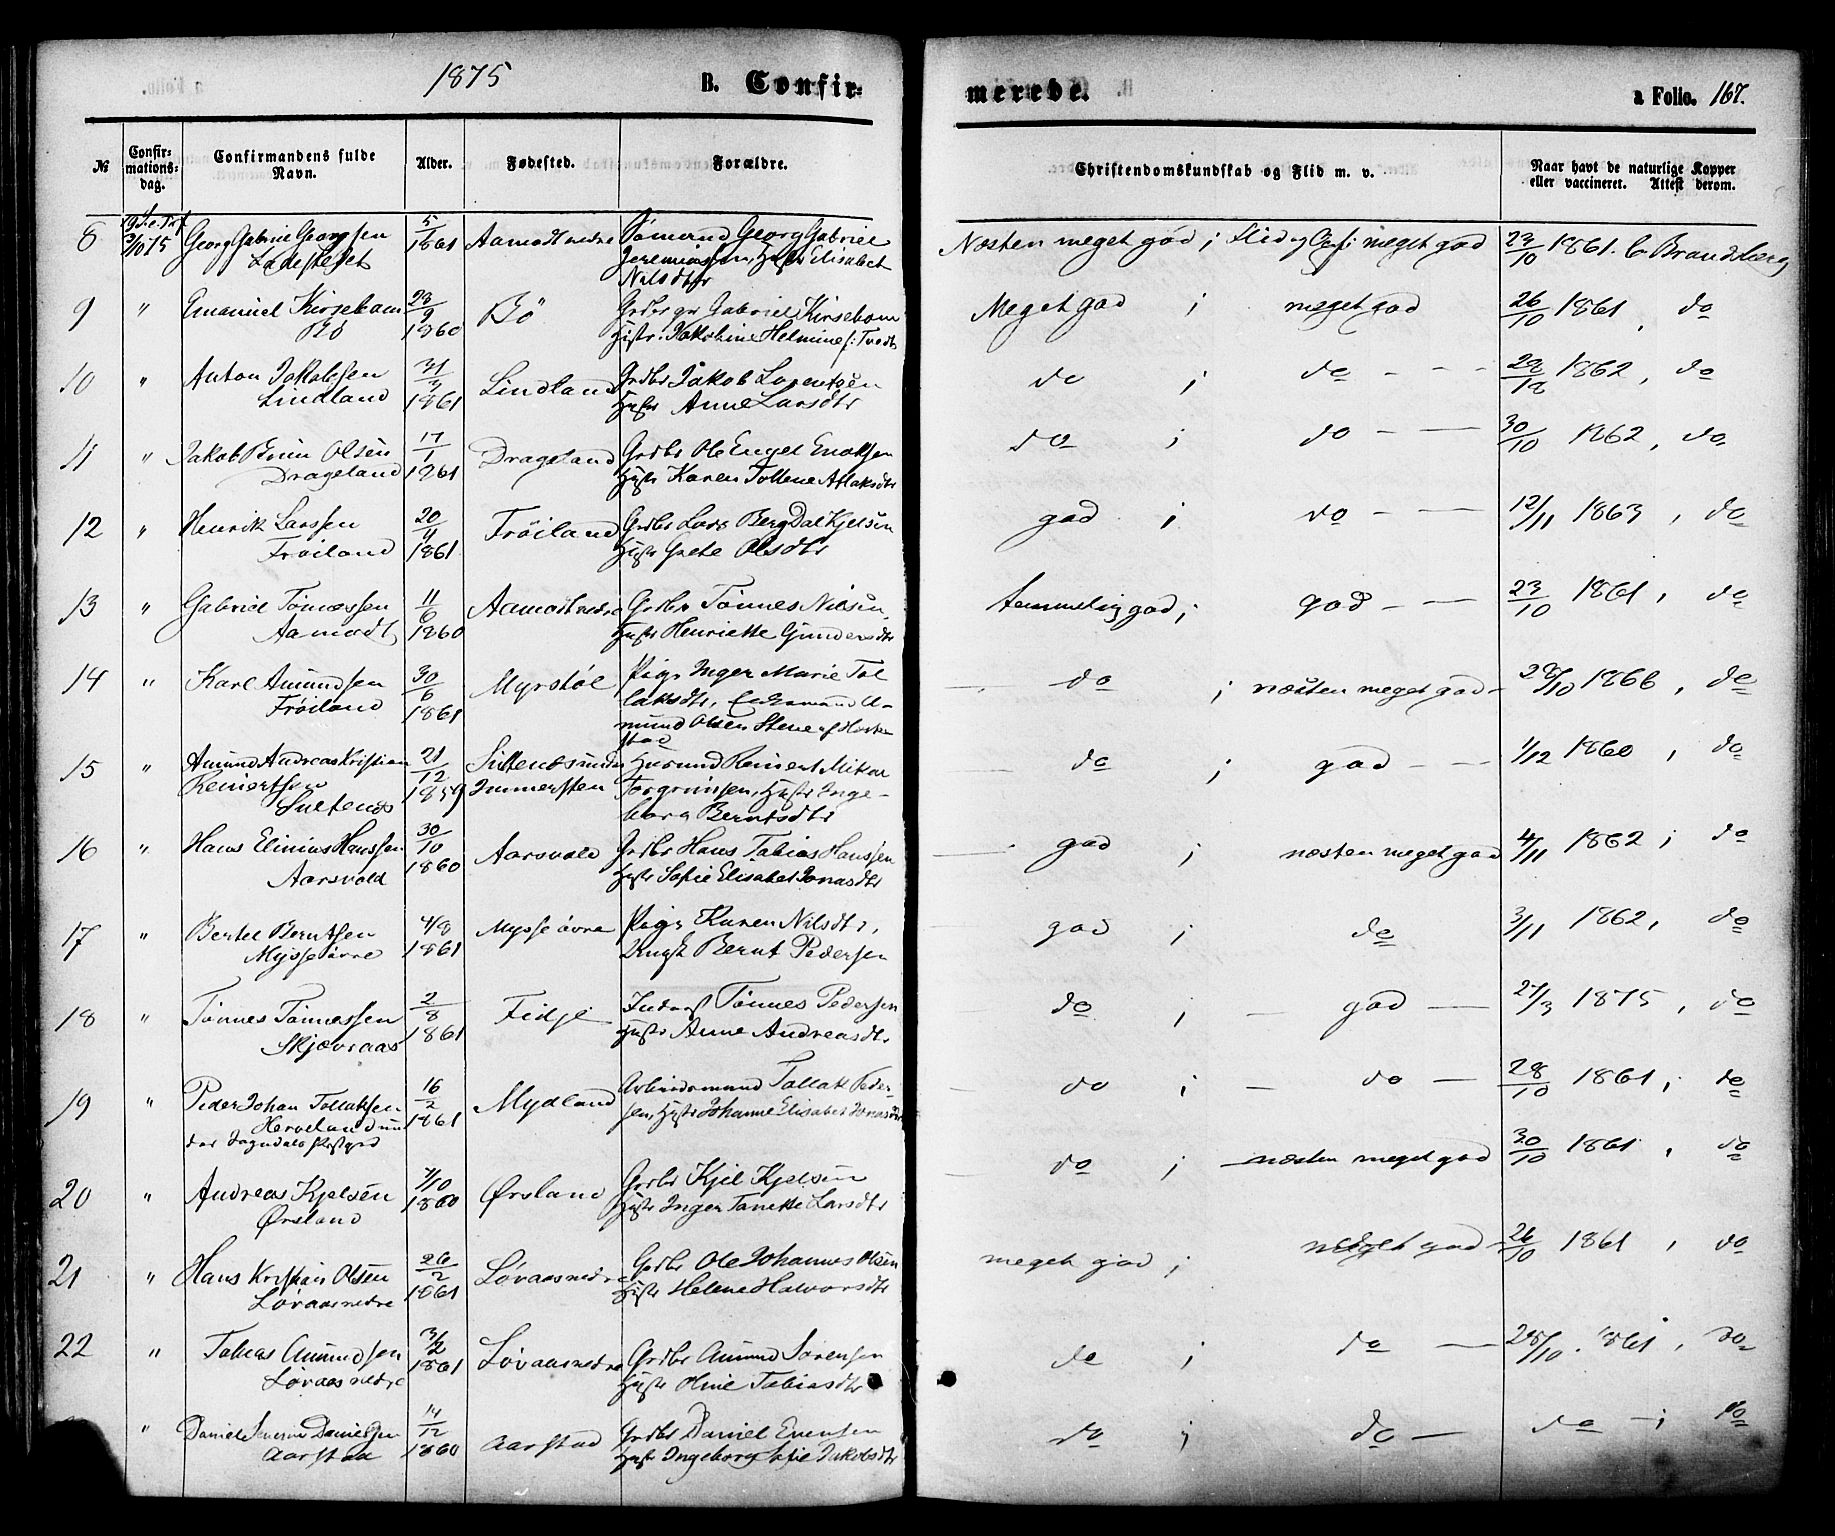 1875
B. Confir-
merede.
a Folio. 167.
№
Confir-
mations-
dag.
Confirmandens fulde
Navn.
Alder.
Fødested.
Forældre.
Christendomskundskab og Flid m. v.
Naar havt de naturlige Kopper
eller vaccineret. Attest derom.
8 3/10 75 Georg Gabriel Georgsen 5/ 1861 Aamodt nedre Sømand Georg Gabriel
Jeremiassen, Hustr Elisabet
Nilsdtr
Næsten meget god ; Flid og Opf: meget god 23/10 1861. C Brandsberg
9 " Emanuel Kirsebom
Bö
23/9 1860 Bö Grdbrgr Gabriel Kirsebom
Hustr. Jakobine Helmine f: Tvedt
Meget god ; meget god 26/10 1861, do
10 " Anton Jakobsen
Lindland
31/ 1861 Lindland Grdbr Jakob Lorentsen
Hustr Anne Larsdtr
do ; do - - - 1862, do
11 " Jakob Olsen
Drageland
17/1 1861 Drageland Grdbr Ole Enget Enoksen
Hustr Karen Tollene Aslaksdtr
do ; do - — 30/10 1862, do
12 " Henrik Larsen
Frøiland
20/11 1861 Frøiland Grdbr Lars Berg Dal Kjelsen
Hustr Grete Olsdtr
god ; do - — 12/11 1863, do
13 " Gabriel Tønnessen
Aamodt
11/6 1860 Aamodt nedre Grdbr Tønnes Nilsen
Hustr Henriette Gundersdtr
temmelig god ; god - — 23/10 1861, do
14 " Karl Amundsen
Frøiland
30/6 1861 Myrstøl Pige Inger Marie Tol
laksdtr, Enkemand A-
mund Olsen Stene af
stad
do ; næsten meget god - 28/10 1866, do
15 " Amund Andreas Kristian
Reinertsen
Sultenes
21/12 1859 Sultenes under
Immersten
Husmand Reinert Mikal
Torgrimsen, Hustr Inge-
borg Berntsdtr
do ; god - — 1/12 1860, do
16 " Hans Elinius Hanssen
Aarsvold
30/10 1860 Aarsvold Grdbr Hans Tobias Hanssen
Hustr Sofie Elisabet Jonasdtr
god ; næsten meget god 4/11 1862 ; do
17 " Bertel Berntsen
Mysse øvre
4/8 1861 Mysse øvre Pige Karen Nilsdtr,
Ungk Bernt Pedersen
god ; do 3/11 1862, do
18 " Tønnes Tønnessen
Skjævraas
2/8 1861 Fidje Inderst Tønnes Pedersen
Hustr Anne Andreasdtr
do ; — god — 27/3 1875, do
19 " Peder Johan Tollaksen
Herveland un
der Jøgndals Prstgjd
16/2 1861 Mydland Arbeidsmand Tollak Peder-
sen, Hustr Johanne Elisabet Jonasdtr
do ; — do — 28/10 1861, do
20 " Andreas Kjelsen
Ørsland
7/10 1860 Ørsland Grdbr Kjel Kjelsen
Hustr Inger Tanette Larsdtr
do ; — næsten meget god 30/10 1861, do
21 " Hans Kristian Olsen
Løvaas nedre
26/2 1861 Løvaas nedre Grdbr Ole Johannes Olsen
Hustr Helene Halvorsdtr
meget god ; meget god - 26/10 1861, do
22 " Tobias Amundsen
Løvaas nedre
3/2 1861 Løvaas nedre Grdbr Amund Sørensen
Hustr Oline Tobiasdtr
do ; do — 28/10. 1861, do
" Daniel Severin Danielsen
Aarstad
14/12 1860 Aarstad Grdbr Daniel Evensen
Hustr Ingeborg Sofie Jakobsdtr
do ; do — do — ; do